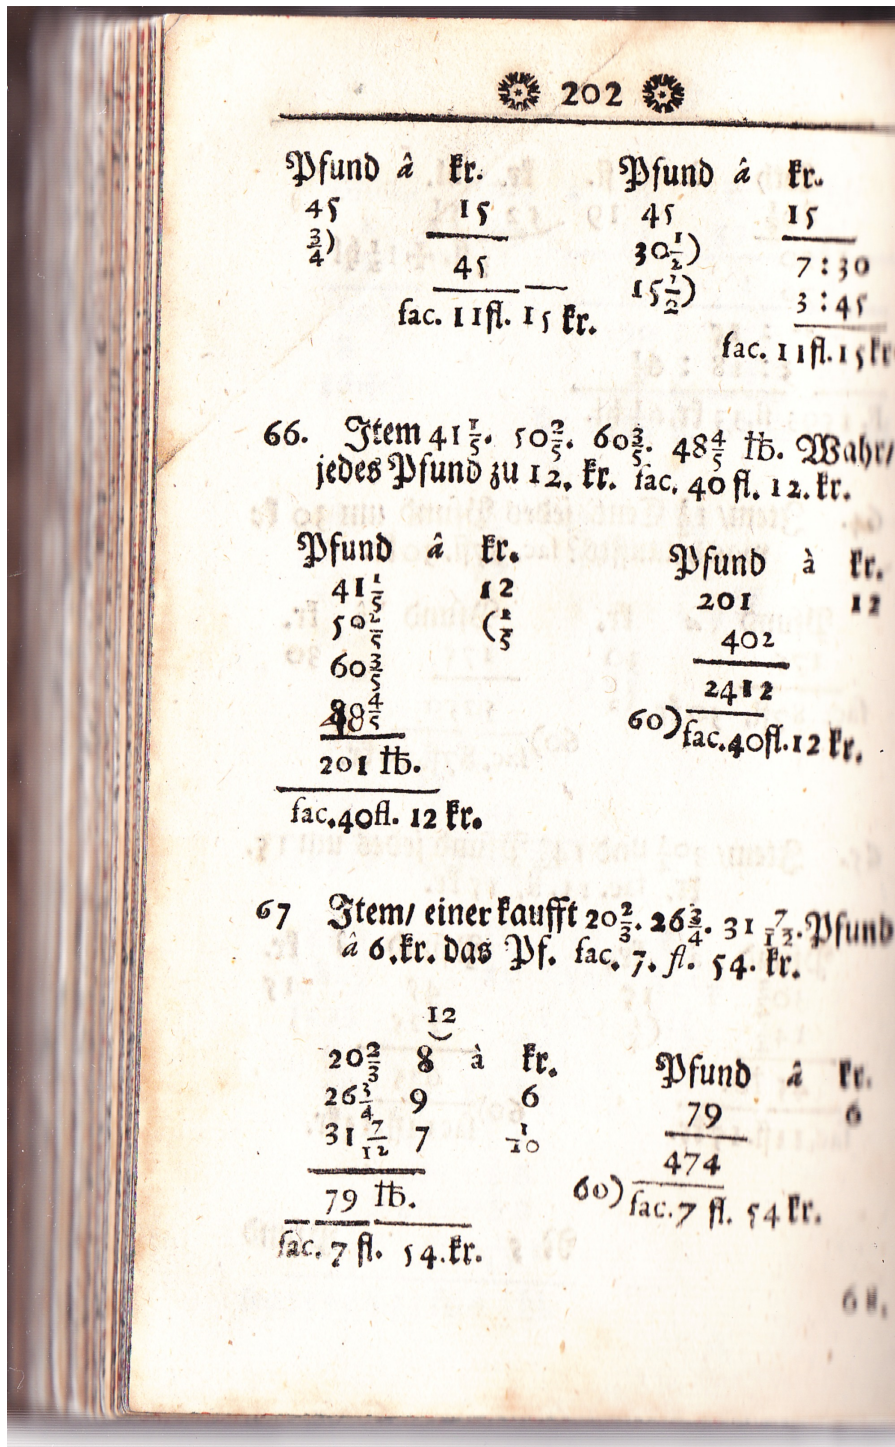 202
Pfund â kr.
45 15
3/4)
45
fac. 11fl. 15 kr.
Pfund â kr.
45 15
30 1/2) 7 : 30
15 1/2) 3 : 45
fac. 11fl. 15 kr
66. Item 41 1/5. 50 2/5. 60 3/5. 48 4/5 ℔. Wahr/
jedes Pfund zu 12. kr. fac. 40 fl. 12. kr.
Pfund â kr.
41 1/5 12
50 2/5 (1/5
60 3/5
48 4/5
201 ℔.
fac. 40fl. 12 kr.
Pfund à kr.
201 12
402
2412
60) fac. 40fl. 12 kr.
67 Item/ einer kaufft 20 2/3. 26 3/4. 31 7/12. Pfund
â 6. kr. das Pf. fac. 7. fl. 54. kr.
12
20 2/3 8 à kr.
26 3/4 9 6
31 7/12 7 1/10
79 ℔.
fac. 7 fl. 54. kr.
Pfund â kr.
79 6
474
60) fac. 7 fl. 54 kr.
68.